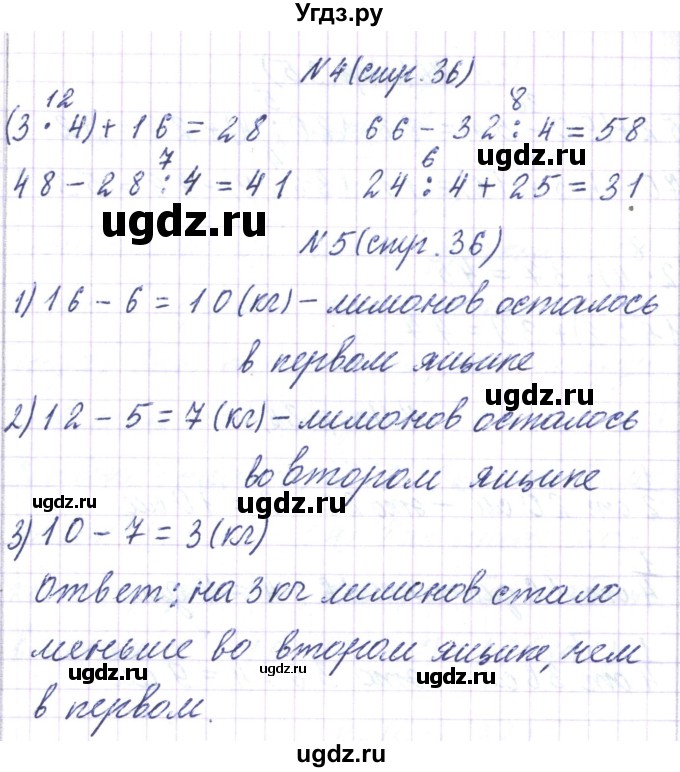 Угдз.ру
N 4 (стр. 36)
12 8
(3 · 4) + 16 = 28 66 - 32 : 4 = 58
ugdz.ru
7 6
48 - 28 : 4 = 41 24 : 4 + 25 = 31
ugdz.ru
N 5 (стр. 36)
1) 16 - 6 = 10 (кг) - лимонов осталось
в первом ящике
ugdz.ru
2) 12 - 5 = 7 (кг) - лимонов осталось
во втором ящике
ugdz.ru ugdz.ru
3) 10 - 7 = 3 (кг)
ugdz.ru
Ответ: на 3 кг лимонов стало
меньше во втором ящике, чем
ugdz.ru ugdz.ru ugdz.ru
в первом.
ugdz.ru